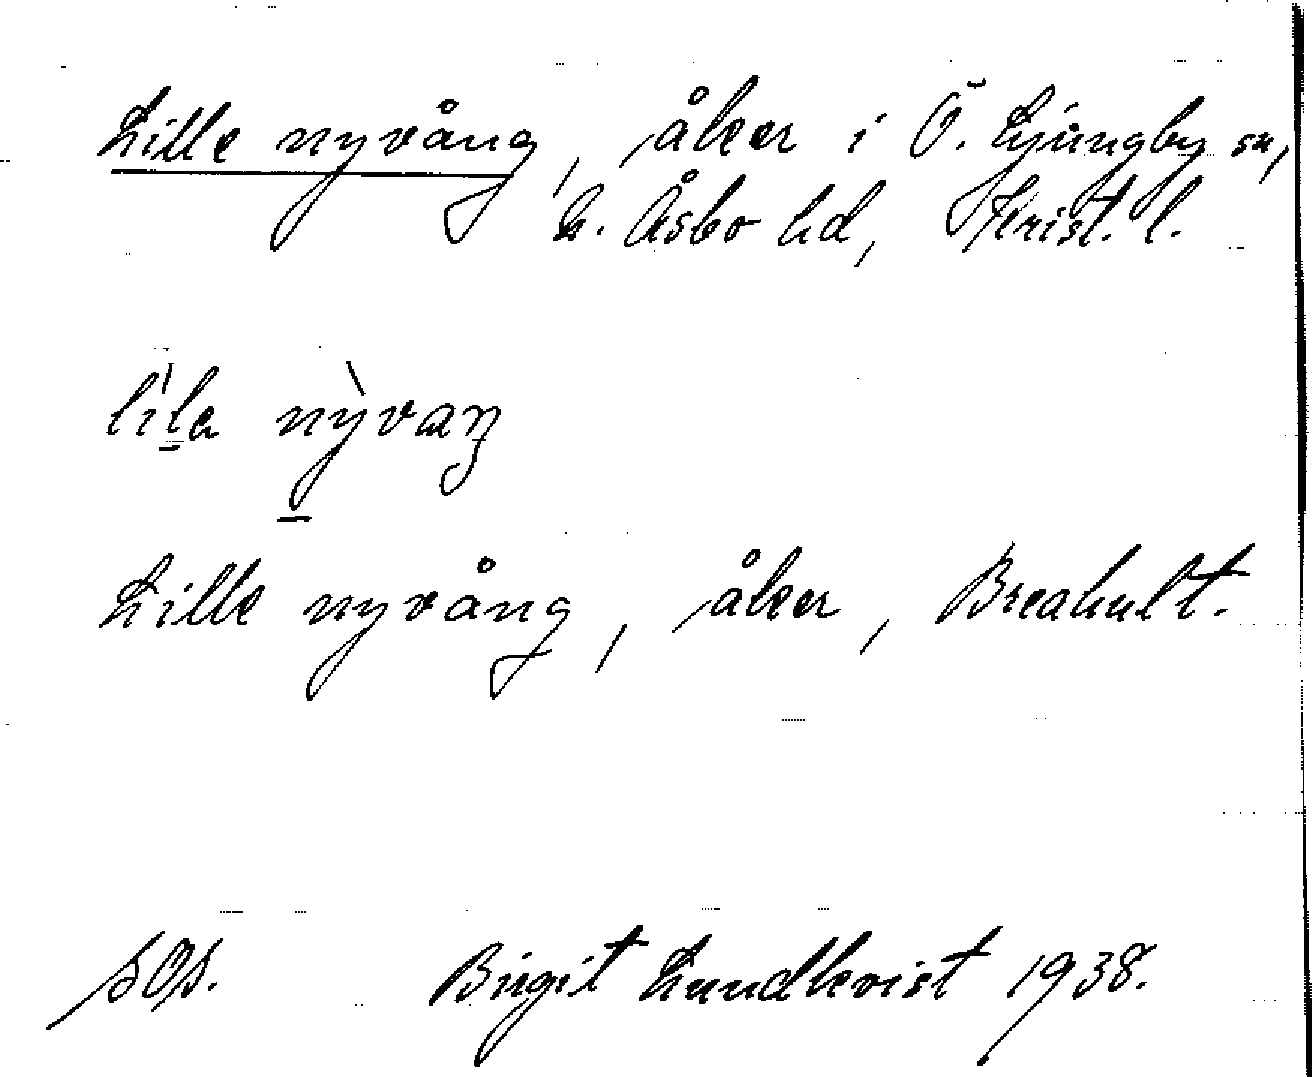 Lille nyvång, åker i Ö. Ljungby sn,
N. Åsbo hd, Krist. l.
lila nỳvaŋ
Lille nyvång, åker, Breahult.
sOs. Birgit Lundkvist 1938.